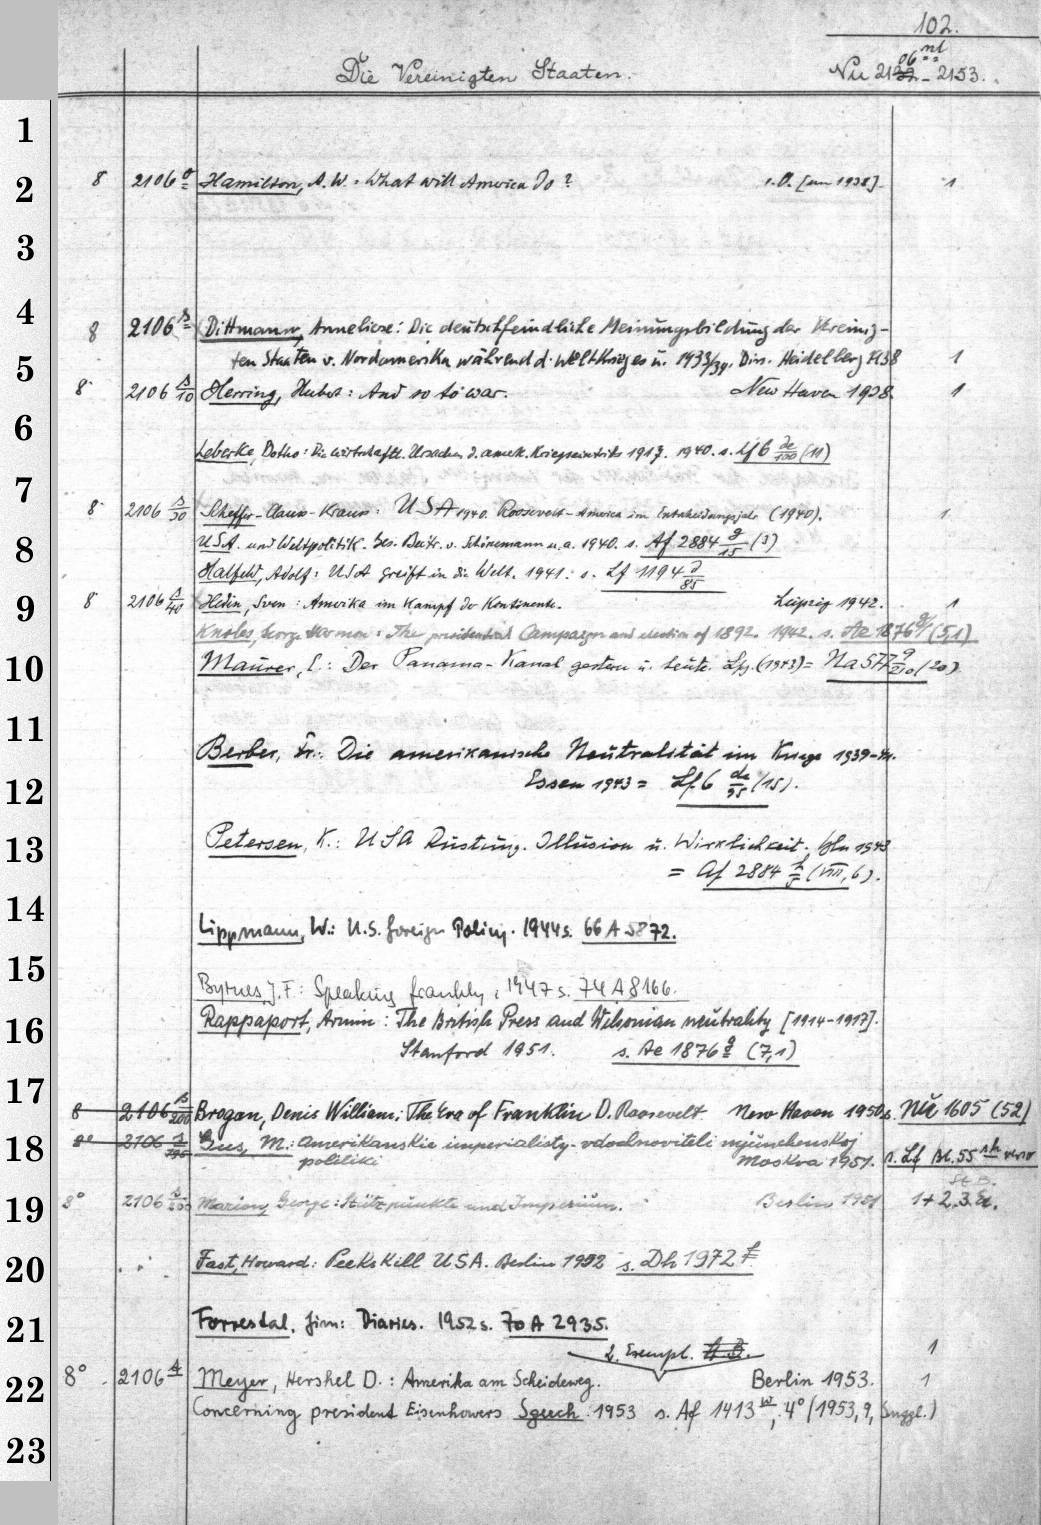 102.
Die Vereinigten Staaten.
nl
06
Nu 21 - 2153.
1
2
3
4
5
6
7
8
9
10
11
12
13
14
15
16
17
18
19
20
21
22
23
8 2106 Hamilton, A. W.: What will America do? [um 1938]. 1
8 2106 s Dittmann, Anneliese: Die deutschfeindliche Meinungsbildung der Vereinig-
ten Staaten v. Nordamerika während d. Weltkrieges u. 1933/34. Diss. Heidelberg 1938 1
8 2106 s/10 Herring, Hubert: And so to war. New Haven 1938. 1
Botho: Die wirtschaftl. Ursachen d. amerik. Kriegseintritts 1917. 1940. s. Lf 6 de/100 (11)
8 2106 s/30 Scheffer-Claus-Krauss: USA 1940. Roosevelt-America im Entscheidungsjahr (1940). 1
USA. und Weltpolitik. Bes. Beitr. v. Schönemann u. a. 1940. s. Af 2884 g/15 (3)
Halfeld, Adolf: USA greift in die Welt. 1941. s. Lf 1194 d/85
8 2106 s/40 Hedin, Sven: Amerika im Kampf der Kontinente. Leipzig 1942. 1
Knoles, George Harmon: The presidential Campaign and election of 1892. 1942. s. Ae 1876 g (5,1)
Maurer, E.: Der Panama-Kanal gestern u. heute. Lpz. (1943) = Na 577 (20)
Berber, Fr.: Die amerikanische Neutralität im Kriege 1939-41.
Essen 1943 = Lf 6 de/95 (15).
Petersen, K.: USA Rüstung. Illusion u. Wirklichkeit. Bln 1943
= Af 2884 (VIII, 6).
Lippmann, W.: U.S. foreign Policy. 1944 s. 66 A 5872.
Byrnes, J. F.: Speaking frankly. 1947 s. 74 A 8166.
Rappaport, Armin: The British Press and Wilsonian neutrality [1914-1917].
Stanford 1951. s. Ae 1876 g (7,1)
8 2106 s/200 Brogan, Denis William: The Era of Franklin D. Roosevelt. New Haven 1950 s. Nu 1605 (52)
2106 M.: Amerikanskie imperialisty-vdochnoviteli mjunchenskoj
politiki Moskva 1951. s. Lf
8° 2106 Marion, George: Stützpunkte und Imperium. Berlin 1951 1+2.3.
Fast, Howard: Peekskill USA. Berlin 1952 s. Dh 1972 f
Forrestal, Jim: Diaries. 1952 s. 70 A 2935.
2. Exempl. 1
8° 2106 Meyer, Hershel D.: Amerika am Scheideweg. Berlin 1953. 1
Concerning president Eisenhowers Speech 1953 s. Af 1413 w, 4° (1953, 9, Suppl.)